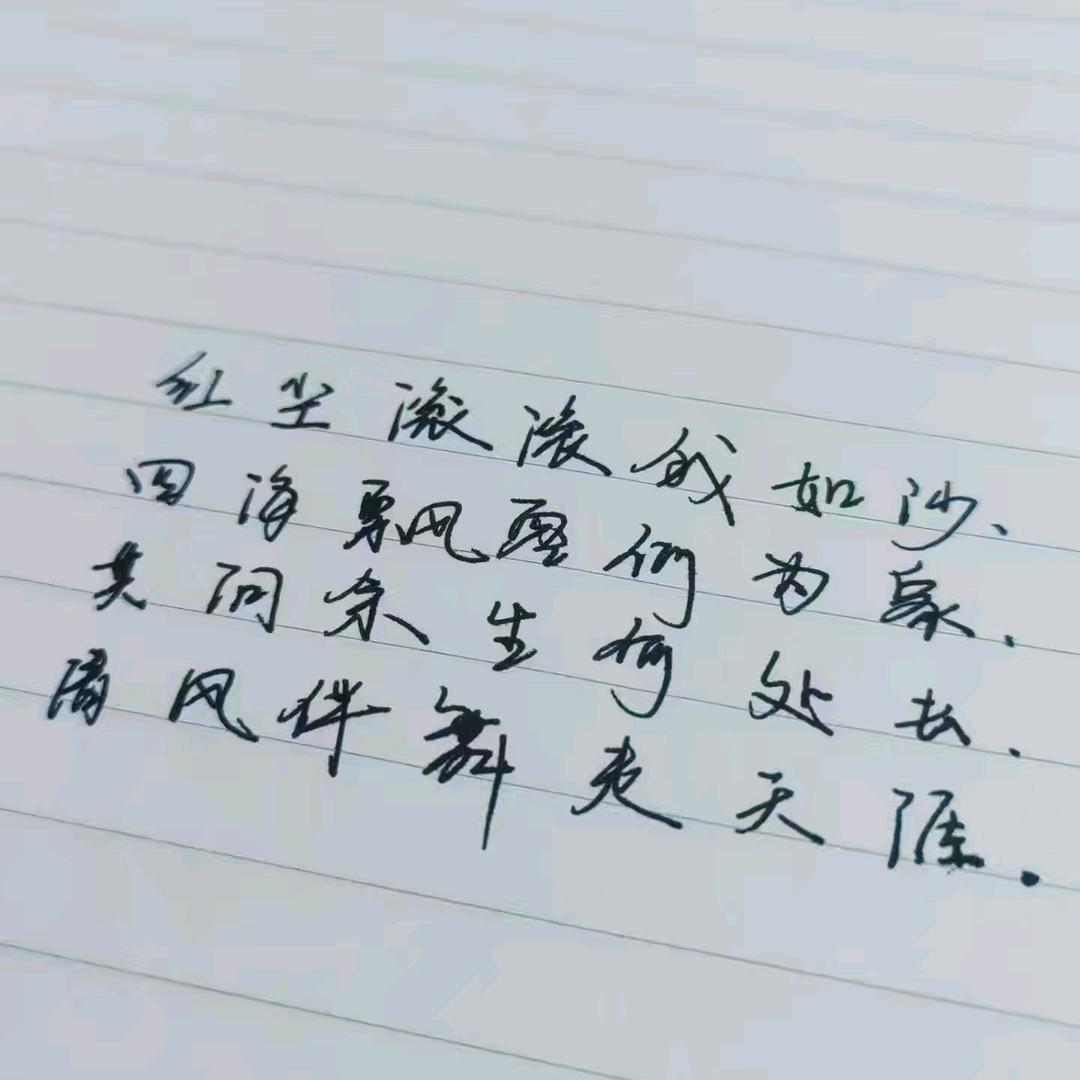 红尘滚滚我如沙、
四海飘零何为家.
共问余生何处去.
清风伴舞走天涯.